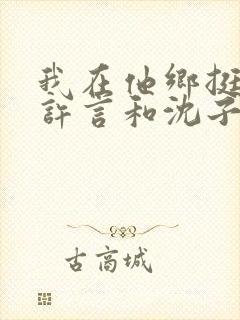 我在他鄉挺
許言和沈子
古高城